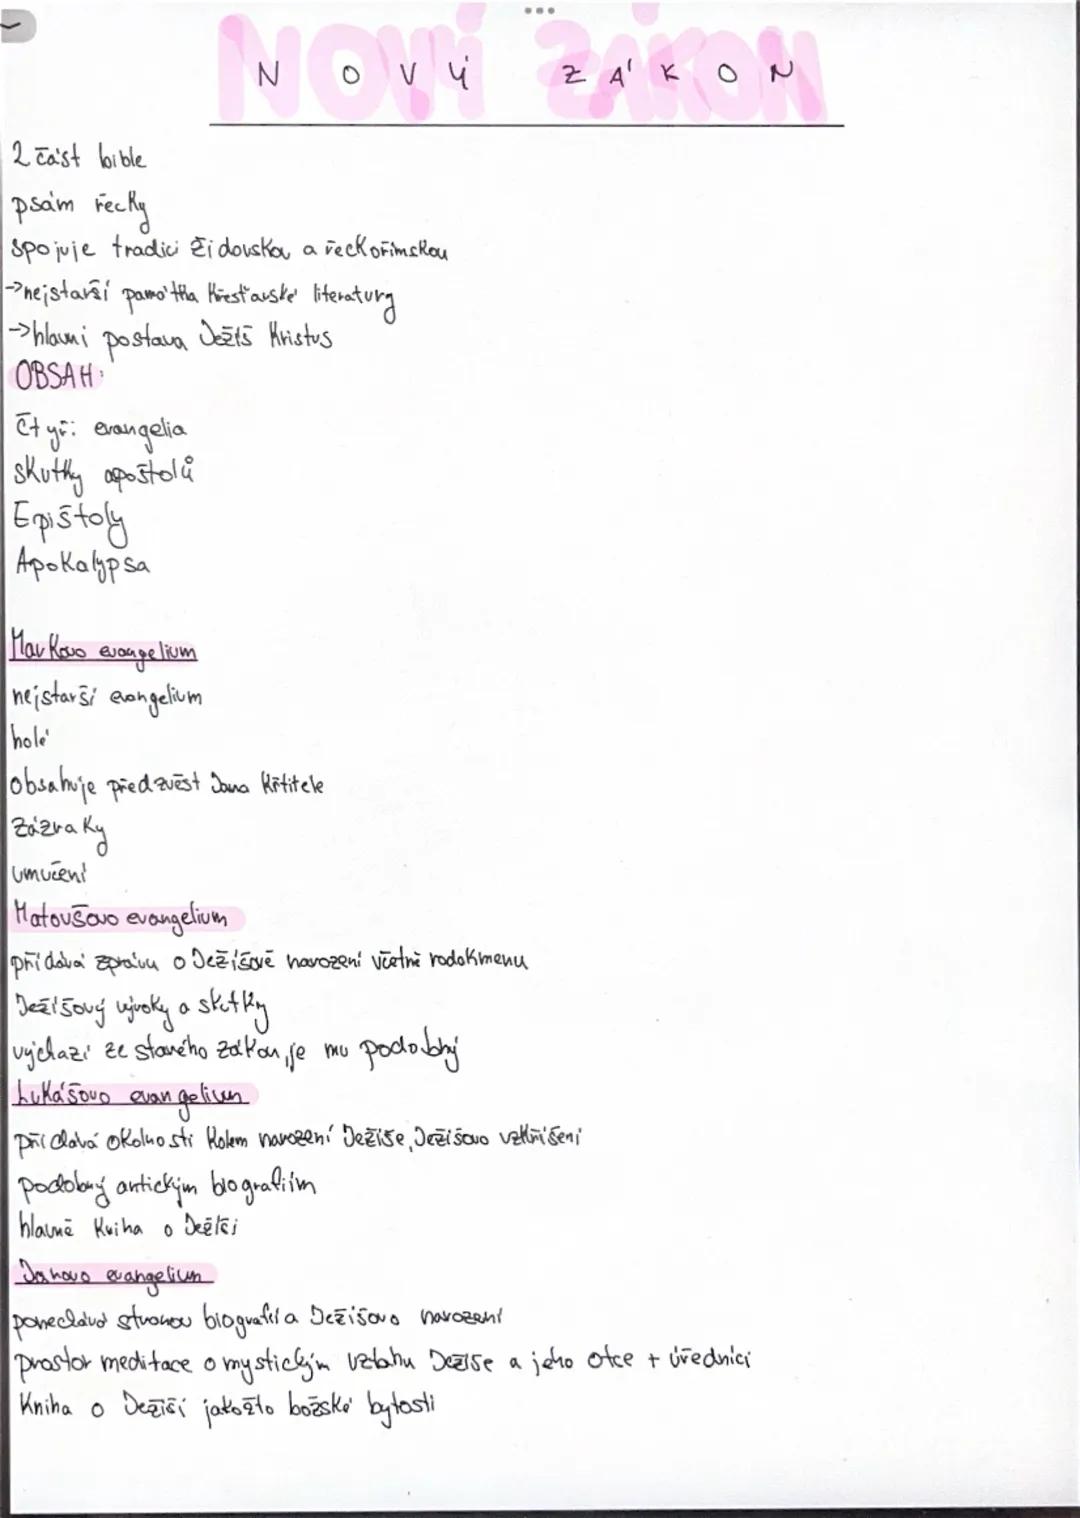 NOVÝ ZÁKON
2 část bible
psám řecky
spojuje tradici židovskou a řeckořímskou
→nejstarší památka křesťanské literatury
→hlavní postava Ježíš Kristus
OBSAH:
čtyři: evangelia
skutky apoštolů
Epištoly
Apokalypsa
Markovo evangelium
nejstarší evangelium
holé
obsahuje předzvěst Jana Křtitele
zázraky
umučení
Matoušovo evangelium
přidává zprávu o Ježíšově narození včetně rodokmenu
Ježíšový výroky a skutky
vychází ze starého zákon, je mu podobný
Lukášovo evangelium
přidává okolnosti kolem narození Ježíše, Ježíšovo vzkříšení
podobný antickým biografiím
hlavně kniha o Ježíši
Janovo evangelium
ponechává stranou biografii a Ježíšovo narození
prostor meditace o mystickým vztahu Ježíše a jeho otce + úředníci
Kniha o Ježíši jakožto božské bytosti